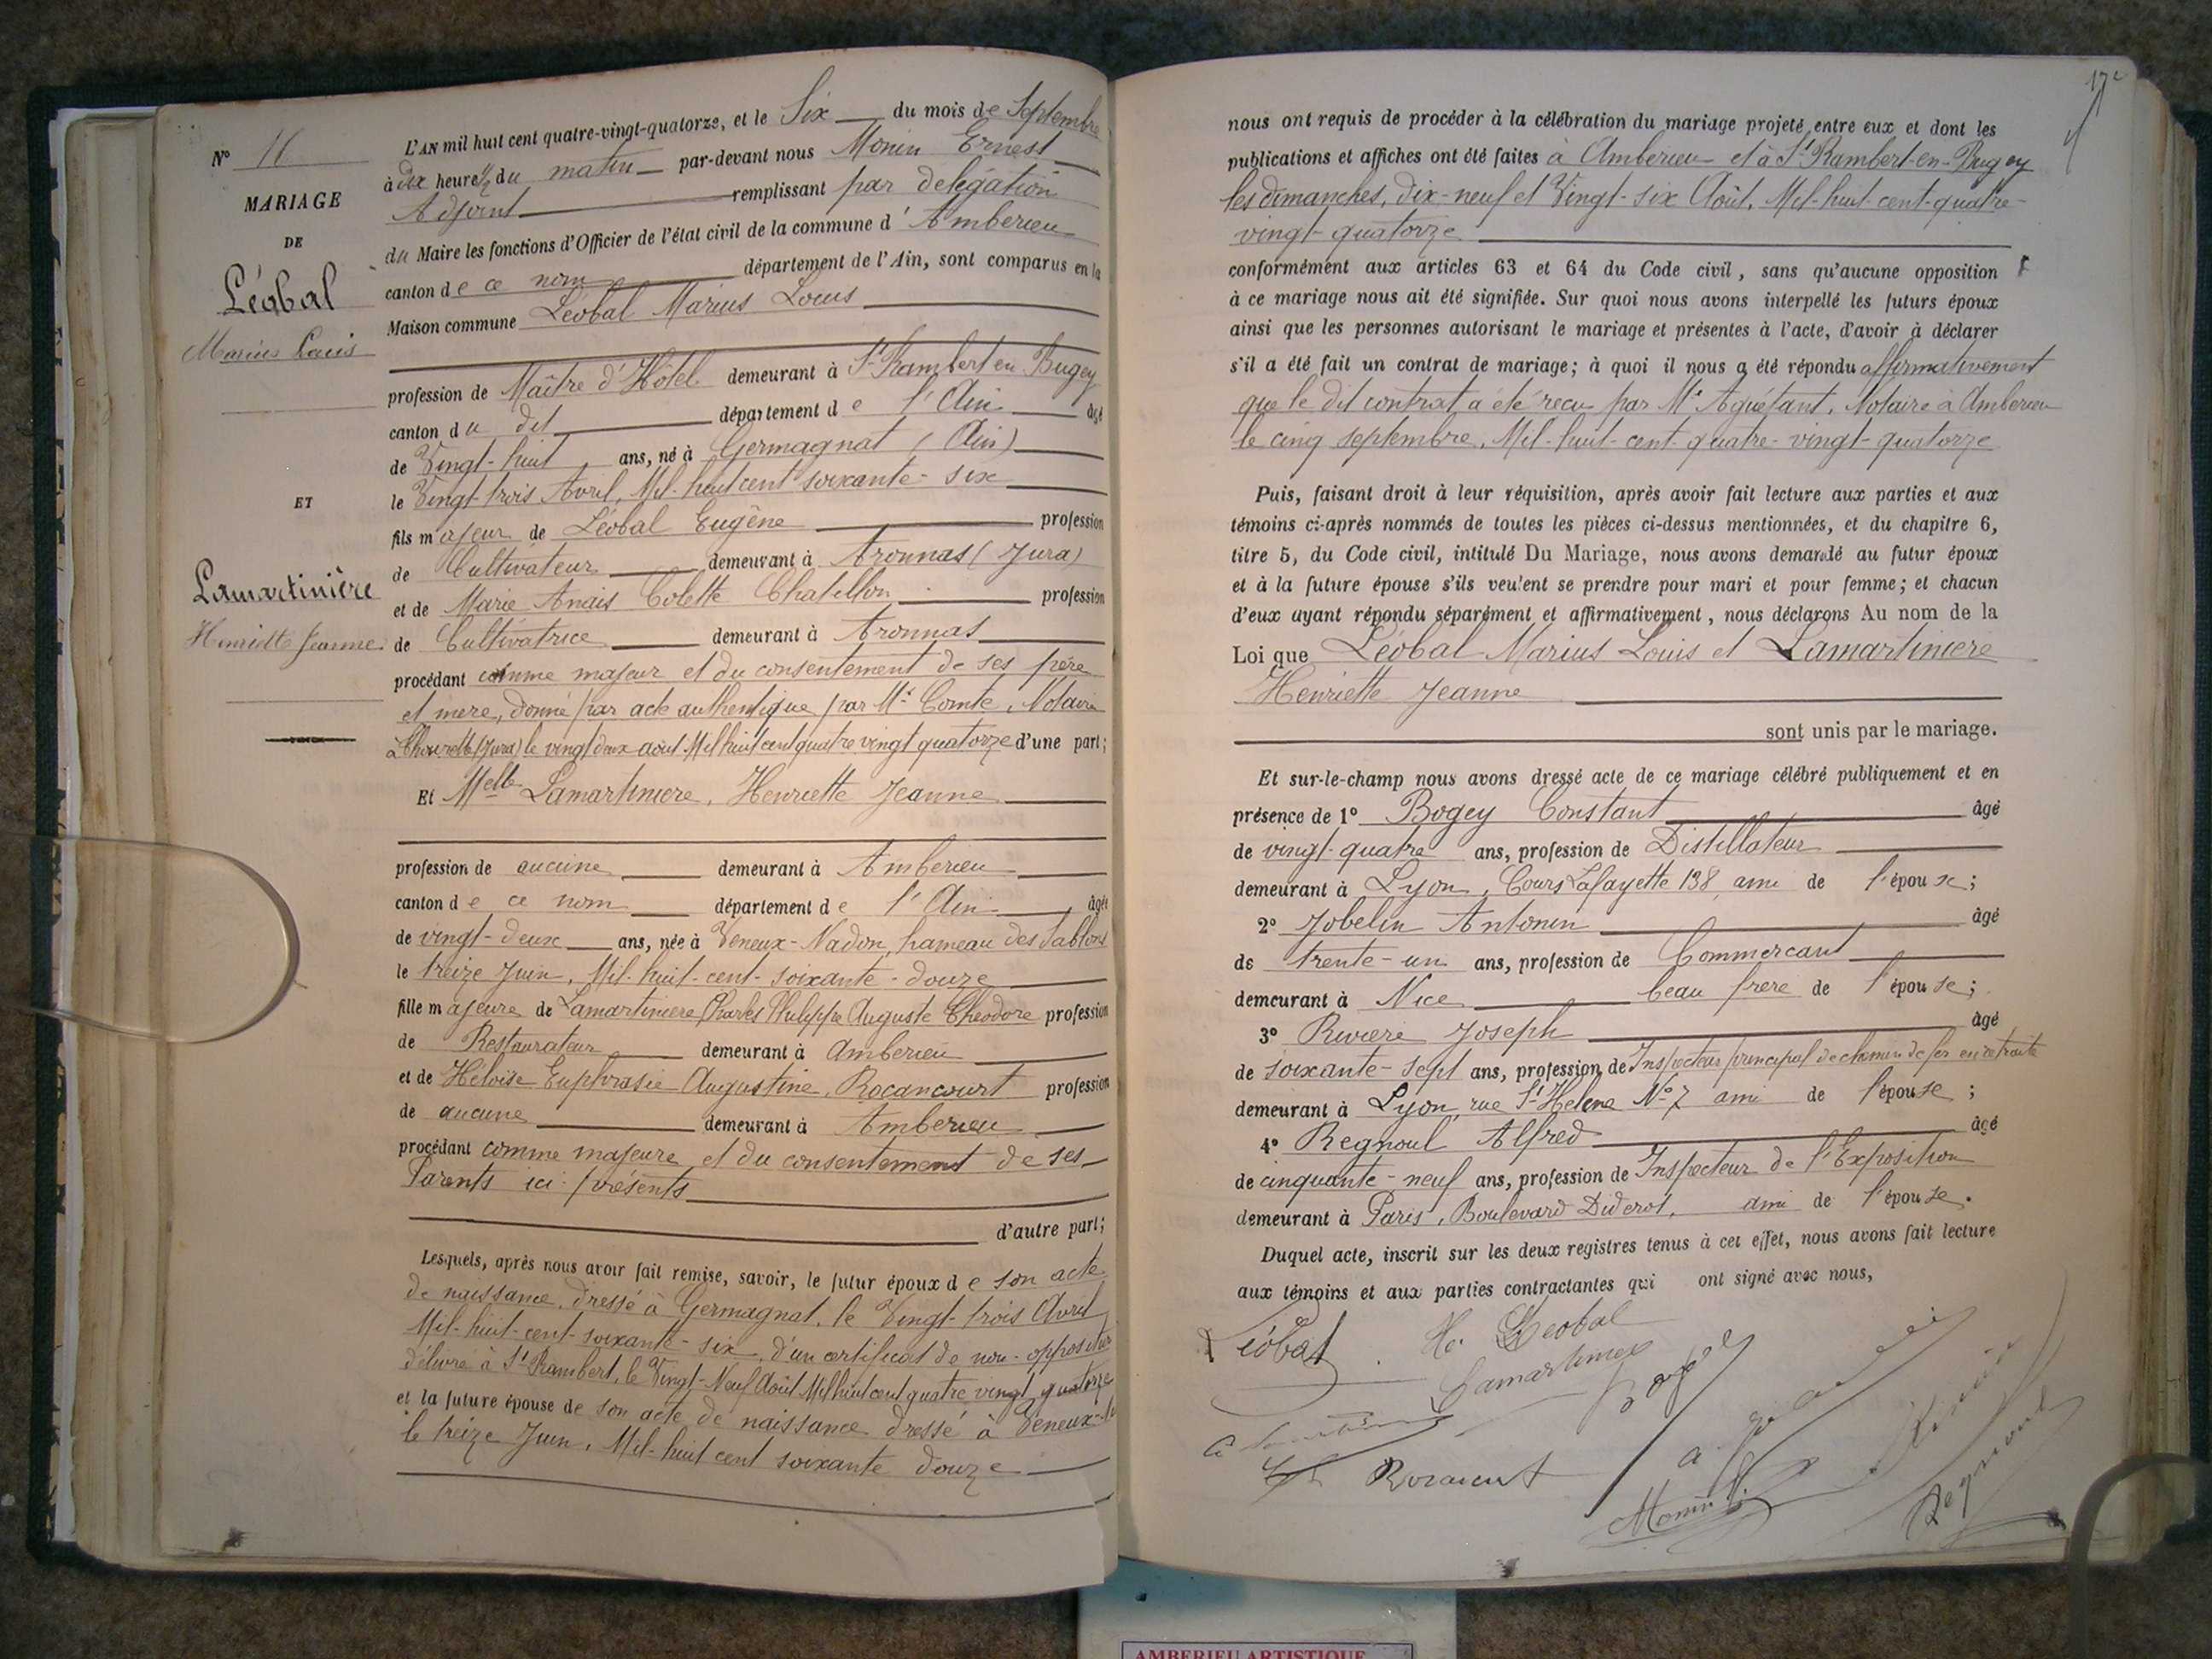 N° 16
MARIAGE
DE
Léobal
Marius Louis
ET
Lamartinière
Henriette Jeanne
L'AN mil huit cent quatre-vingt-quatorze, et le Six du mois de Septembre
à dix heures 1/2 du matin par-devant nous Monin Ernest
Adjoint remplissant par délégation
du Maire les fonctions d'Officier de l'état civil de la commune d'Amberieu
canton de ce nom département de l'Ain, sont comparus en la
Maison commune Léobal Marius Louis
profession de Maître d'Hôtel demeurant à St Rambert en Bugey
canton du dit département de l'Ain âgé
de Vingt-huit ans, né à Germagnat (Ain)
le Vingt-trois Avril, Mil-huit cent soixante-six
fils majeur de Léobal Eugène profession
de Cultivateur demeurant à Aronnas (Jura)
et de Marie Anais Colette Chatillon profession
de Cultivatrice demeurant à Aronnas
procédant comme majeur et du consentement de ses père
et mère, donné par acte authentique par Me Comte, Notaire
(Jura) le vingt deux août Mil huit cent quatre vingt quatorze d'une part;
Et Melle Lamartiniere, Henriette Jeanne
profession de aucune demeurant à Amberieu
canton de ce nom département de l'Ain âgée
de vingt-deux ans, née à Veneux-Nadon, hameau des Sablons
le treize Juin, Mil-huit-cent-soixante-douze
fille majeure de Lamartiniere Charles Philippe Auguste Théodore profession
de Restaurateur demeurant à Amberieu
et de Héloïse Euphrasie Augustine Rocancourt profession
de aucune demeurant à Amberieu
procédant comme majeure et du consentement de ses
Parents ici présents
d'autre part;
Lesquels, après nous avoir fait remise, savoir, le futur époux de son acte
de naissance, dressé à Germagnat, le Vingt-trois Avril
Mil-huit-cent-soixante-six, d'un certificat de non-opposition
délivré à St Rambert, le Vingt-Neuf Août Mil huit cent quatre vingt quatorze
et la future épouse de son acte de naissance dressé à Veneux-
le treize Juin, Mil-huit cent soixante douze
nous ont requis de procéder à la célébration du mariage projeté entre eux et dont les
publications et affiches ont été faites à Amberieu et à St Rambert-en-Bugey
les dimanches, dix-neuf et Vingt-six Août, Mil-huit-cent-quatre-
vingt-quatorze
conformément aux articles 63 et 64 du Code civil, sans qu'aucune opposition
à ce mariage nous ait été signifiée. Sur quoi nous avons interpellé les futurs époux
ainsi que les personnes autorisant le mariage et présentes à l'acte, d'avoir à déclarer
s'il a été fait un contrat de mariage; à quoi il nous a été répondu affirmativement
que le dit contrat a été reçu par Me Aguétant, Notaire à Amberieu
le cinq septembre, Mil-huit-cent-quatre-vingt-quatorze
Puis, faisant droit à leur réquisition, après avoir fait lecture aux parties et aux
témoins ci-après nommés de toutes les pièces ci-dessus mentionnées, et du chapitre 6,
titre 5, du Code civil, intitulé Du Mariage, nous avons demandé au futur époux
et à la future épouse s'ils veulent se prendre pour mari et pour femme; et chacun
d'eux ayant répondu séparément et affirmativement, nous déclarons Au nom de la
Loi que Léobal Marius Louis et Lamartiniere
Henriette Jeanne
sont unis par le mariage.
Et sur-le-champ nous avons dressé acte de ce mariage célébré publiquement et en
présence de 1° Bogey Constant âgé
de vingt-quatre ans, profession de Distillateur
demeurant à Lyon, Cours Lafayette 138, ami de l'épouse;
2° Jobelin Antonin âgé
de trente-un ans, profession de Commercant
demeurant à Nice beau frere de l'épouse;
3° Riviere Joseph âgé
de soixante-sept ans, profession de Inspecteur principal de chemin de fer en retraite
demeurant à Lyon, rue St Helene No 7 ami de l'épouse;
4° Regnoul Alfred âgé
de cinquante-neuf ans, profession de Inspecteur de l'Exposition
demeurant à Paris, Boulevard Diderot, ami de l'épouse.
Duquel acte, inscrit sur les deux registres tenus à cet effet, nous avons fait lecture
aux témoins et aux parties contractantes qui ont signé avec nous,
Léobal
Leobal
Monin
Regnoul
AMBERIEU ARTISTIQUE